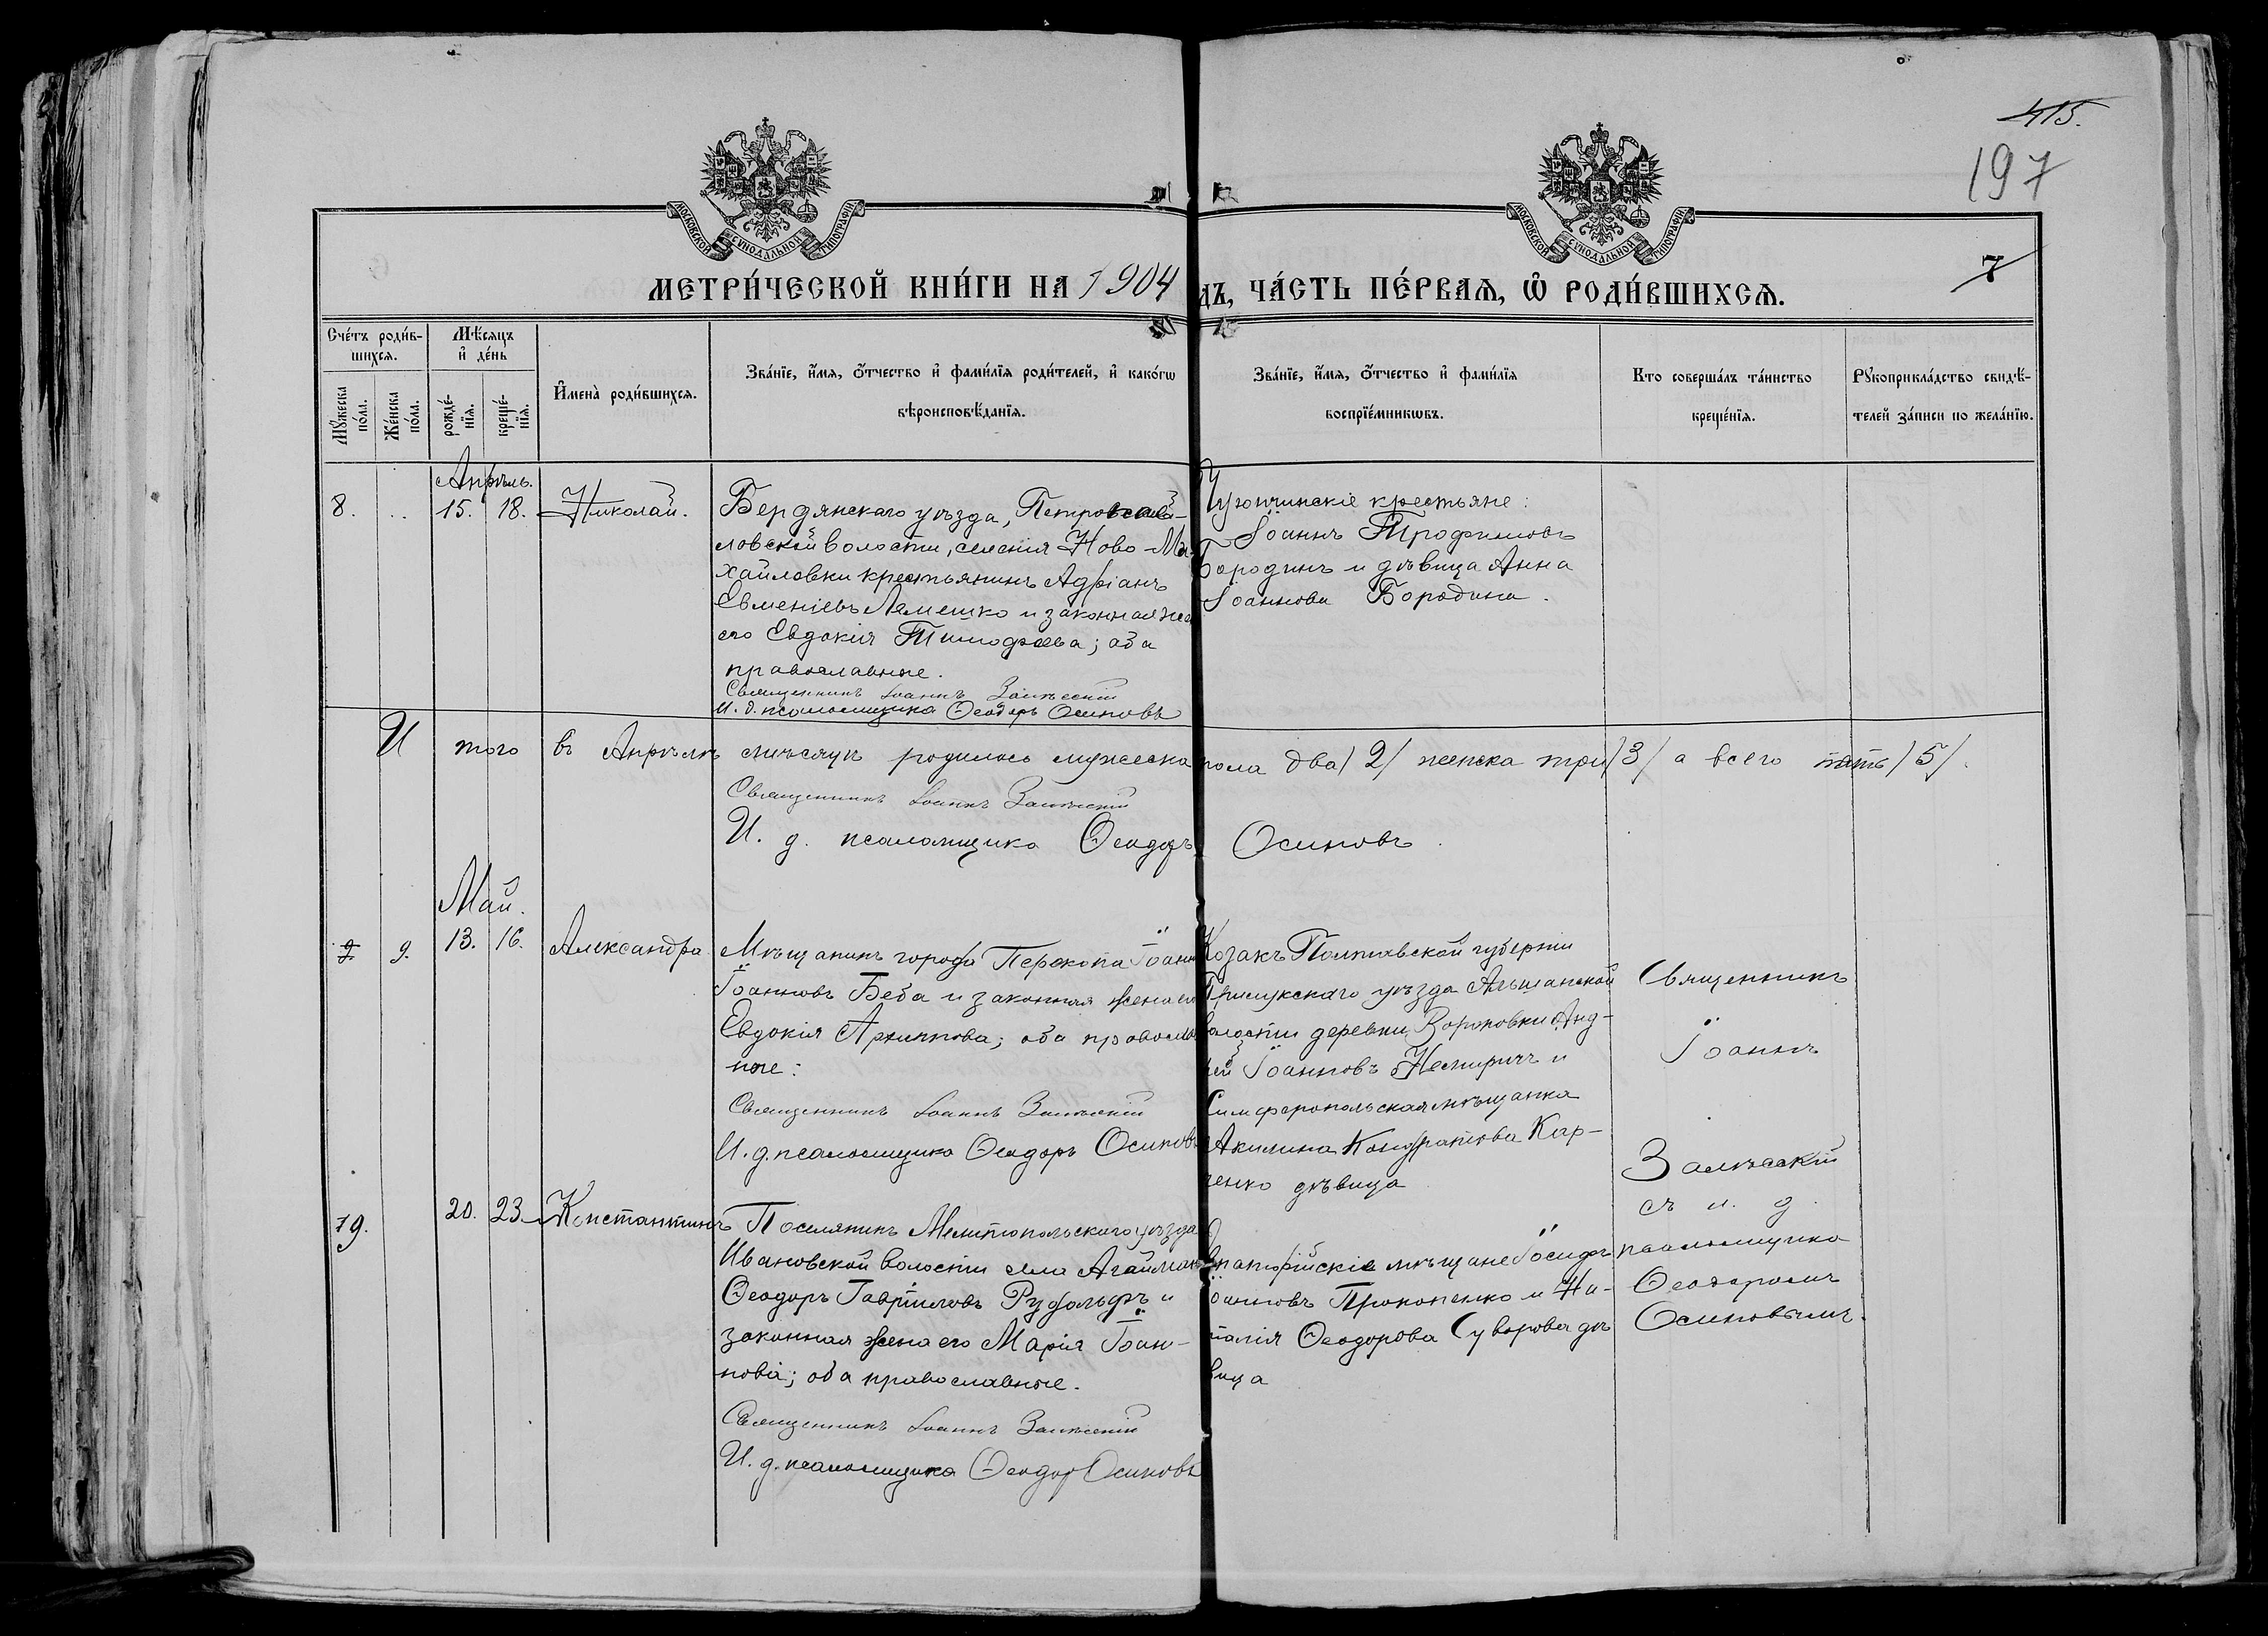 415.
197
7
МОСКОВСКОЙ СѴНОДАЛЬНОЙ ТИПОГРАФІИ
МОСКОВСКОЙ СѴНОДАЛЬНОЙ ТИПОГРАФІИ
МЕТРИ́ЧЕСКОЙ КНИ́ГИ НА 1904
ДЪ, ЧА́СТЬ ПЕ́РВАѦ, Ѿ РОДИ́ВШИХСѦ.
Сче́тъ роди́в-
шихсѧ.
Мѣ́сѧцъ
и҆ де́нь
Мꙋ́жеска
по́ла.
Же́нска
по́ла.
рожде́-
нїѧ.
креще́-
нїѧ.
И҆мена̀ роди́вшихсѧ.
Зва́нїе, и҆́мѧ, ѻ҆́тчество и҆ фами́лїѧ роди́телей, и҆ како́гѡ
вѣроисповѣ́данїѧ.
Зва́нїе, и҆́мѧ, ѻ҆́тчество и҆ фами́лїѧ
воспрїе́мникѡвъ.
Кто соверша́лъ та́инство
креще́нїѧ.
Рꙋкоприкла́дство свидѣ́-
телей за́писи по жела́нїю.
Апрѣль.
8. .. 15. 18. Николай.
Бердянскаго уѣзда,
ловской волости, селенія Ново-Ми-
хайловки крестьянинъ Адріанъ
Евменіевъ Лемешко и законная жена
его Евдокія Тимофѣева; оба
православные.
Священникъ Іоаннъ Залѣсскій
И. д. псаломщика Ѳеодоръ Осиповъ
крестьяне:
Іоаннъ Трофимовъ
Бородинъ и дѣвица Анна
Іоаннова Бородина.
И того въ Апрѣлѣ мѣсяцѣ родилось мужеска пола два /2/ женска три /3/ а всего пять /5/.
Священникъ Іоаннъ Залѣсскій
И. д. псаломщика Ѳеодоръ Осиповъ.
Май.
9. 13. 16. Александра
Мѣщанинъ города Перекопа Іоаннъ
Іоанновъ Беба и законная жена его
Евдокія Архиппова; оба православ
ные:
Священникъ Іоаннъ Залѣсскій
И. д. псаломщика Ѳеодоръ Осиповъ
Козакъ Полтавской губерніи
Прилукскаго уѣзда
волости деревни Вороновки Анд-
рей Іоанновъ Немиричъ и
Симферопольская мѣщанка
Акилина Кондратова Кар-
ченко дѣвица
Священникъ
Іоаннъ
Залѣсскій
съ и. д.
псаломщика
Ѳеодоромъ
Осиповымъ.
9. 20. 23. Константинъ
Поселянинъ Мелитопольскаго уѣзда
Ивановской волости села Агайманъ
Ѳеодоръ Гавріиловъ Рудольфъ и
законная жена его Марія Іоан-
нова; оба православные.
Священникъ Іоаннъ Залѣсскій
И. д. псаломщика Ѳеодоръ Осиповъ
Евпаторійскіе мѣщане Іосифъ
Іоанновъ Прокопенко и На-
талія Ѳеодорова Суворова дѣ
вица